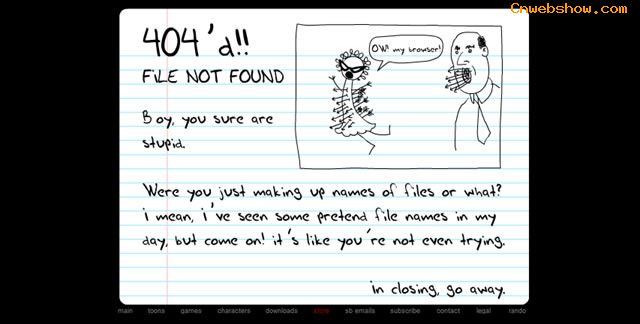 Cnwebshow.com
404'd!!
FiLE NOT FOUND
OW! my browser!
Boy, you sure are
stupid.
Were you just making up names of files or what?
i mean, i've seen some pretend file names in my
day, but come on! it's like you're not even trying.
in closing, go away.
main toons games characters downloads store sb emails subscribe contact legal rando